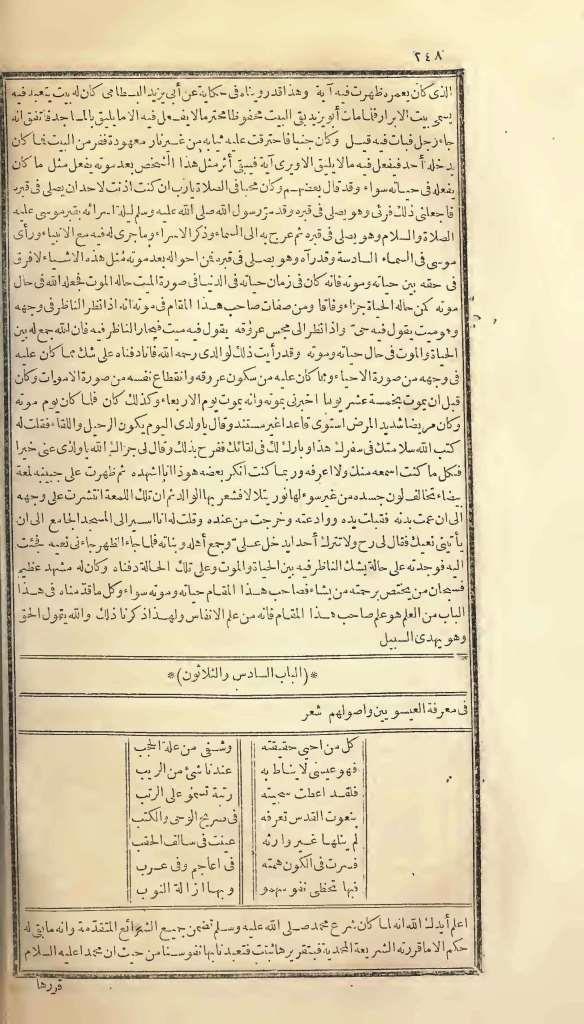 ٢٤٨
الذي كان يعمره ظهرت فيه آية وهذا قد رويناه في حكاية عن أبي يزيد البسطامي كان له بيت يتعبد فيه
يسمى بيت الابرار فلما مات أبو يزيد بقي البيت محفوظا محترما لا يفعل فيه الا ما يليق بالمساجد فاتفق انه
جاء رجل فبات فيه قيل وكان جنبا فاحترقت عليه ثيابه من غير نار معهودة ففر من البيت فما كان
يدخله أحد فيفعل فيه ما لا يليق الا ويرى آية فيبقى أثر مثل هذا الشخص بعد موته يفعل مثل ما كان
يفعله في حياته سواء وقد قال بعضهم وكان محبا في الصلاة يا رب ان كنت اذنت لاحد ان يصلي في قبره
فاجعلني ذلك فرئي وهو يصلي في قبره وقد مر رسول الله صلى الله عليه وسلم ليلة اسرائه بقبر موسى عليه
الصلاة والسلام وهو يصلي في قبره ثم عرج به الى السماء وذكر الاسراء وما جرى له فيه مع الانبياء ورأى
موسى في السماء السادسة وقد رآه وهو يصلي في قبره فمن احواله بعد موته مثل هذه الاشياء لا فرق
في حقه بين حياته وموته فانه كان في زمان حياته في الدنيا في صورة الميت حاله الموت فجعله الله في حال
موته كمن حاله الحياة جزاء وفاقا ومن صفات صاحب هذا المقام في موته انه اذا نظر الناظر في وجهه
وهو ميت يقول فيه حي واذا نظر الى مجس عروقه يقول فيه ميت فيحار الناظر فيه فان الله جمع له بين
الحياة والموت في حال حياته وموته وقد رأيت ذلك لوالدي رحمه الله فانا دفناه على شك مما كان عليه
في وجهه من صورة الاحياء ومما كان عليه من سكون عروقه وانقطاع نفسه من صورة الاموات وكان
قبل ان يموت بخمسة عشر يوما اخبرني بموته وانه يموت يوم الاربعاء وكذلك كان فلما كان يوم موته
وكان مريضا شديد المرض استوى قاعدا غير مستند وقال يا ولدي اليوم يكون الرحيل واللقاء فقلت له
كتب الله سلامتك في سفرك هذا وبارك لك في لقائك ففرح بذلك وقال لي جزاك الله يا ولدي عني خيرا
فكل ما كنت اسمعه منك ولا اعرفه وربما كنت أنكر بعضه هو ذا انا اشهده ثم ظهرت على جبينه لمعة
بيضاء تخالف لون جسده من غير سوء لها نور يتلألأ فشعر بها الوالد ثم ان تلك اللمعة انتشرت على وجهه
الى ان عمت بدنه فقبلت يده ووادعته وخرجت من عنده وقلت له انا اسير الى المسجد الجامع الى ان
يأتيني نعيك فقال لي رح ولا تترك أحدا يدخل علي وجمع أهله وبناته فلما جاء الظهر جاءني نعيه فجئت
اليه فوجدته على حالة يشك الناظر فيه بين الحياة والموت وعلى تلك الحالة دفناه وكان له مشهد عظيم
فسبحان من يختص برحمته من يشاء فصاحب هذا المقام حياته وموته سواء وكل ما قدمناه في هذا
الباب من العلم هو علم صاحب هذا المقام فانه من علم الانفاس ولهذا ذكرنا ذلك والله يقول الحق
وهو يهدي السبيل
* (الباب السادس والثلاثون) *
في معرفة العيسويين واصولهم شعر
كل من احيي حقيقته وشفي من علة الحجب
فهو عيسى لا يناط به عندنا شئ من الريب
فلقد اعطت سجيته رتبة تسمو على الرتب
بنعوت القدس تعرفه في صريح الوحي والكتب
لم ينلها غير وارثه عينت في سالف الحقب
فسرت في الكون همته في اعاجم وفي عرب
فبها تحظى نفوسهمو وبها ازالة النوب
اعلم أيدك الله انه لما كان شرع محمد صلى الله عليه وسلم تضمن جميع الشرائع المتقدمة وانه ما بقي له
حكم الا ما قررته الشريعة المحمدية فبتقريرها ثبتت فتعبدنا بها نفوسنا من حيث ان محمدا عليه السلام
قررها